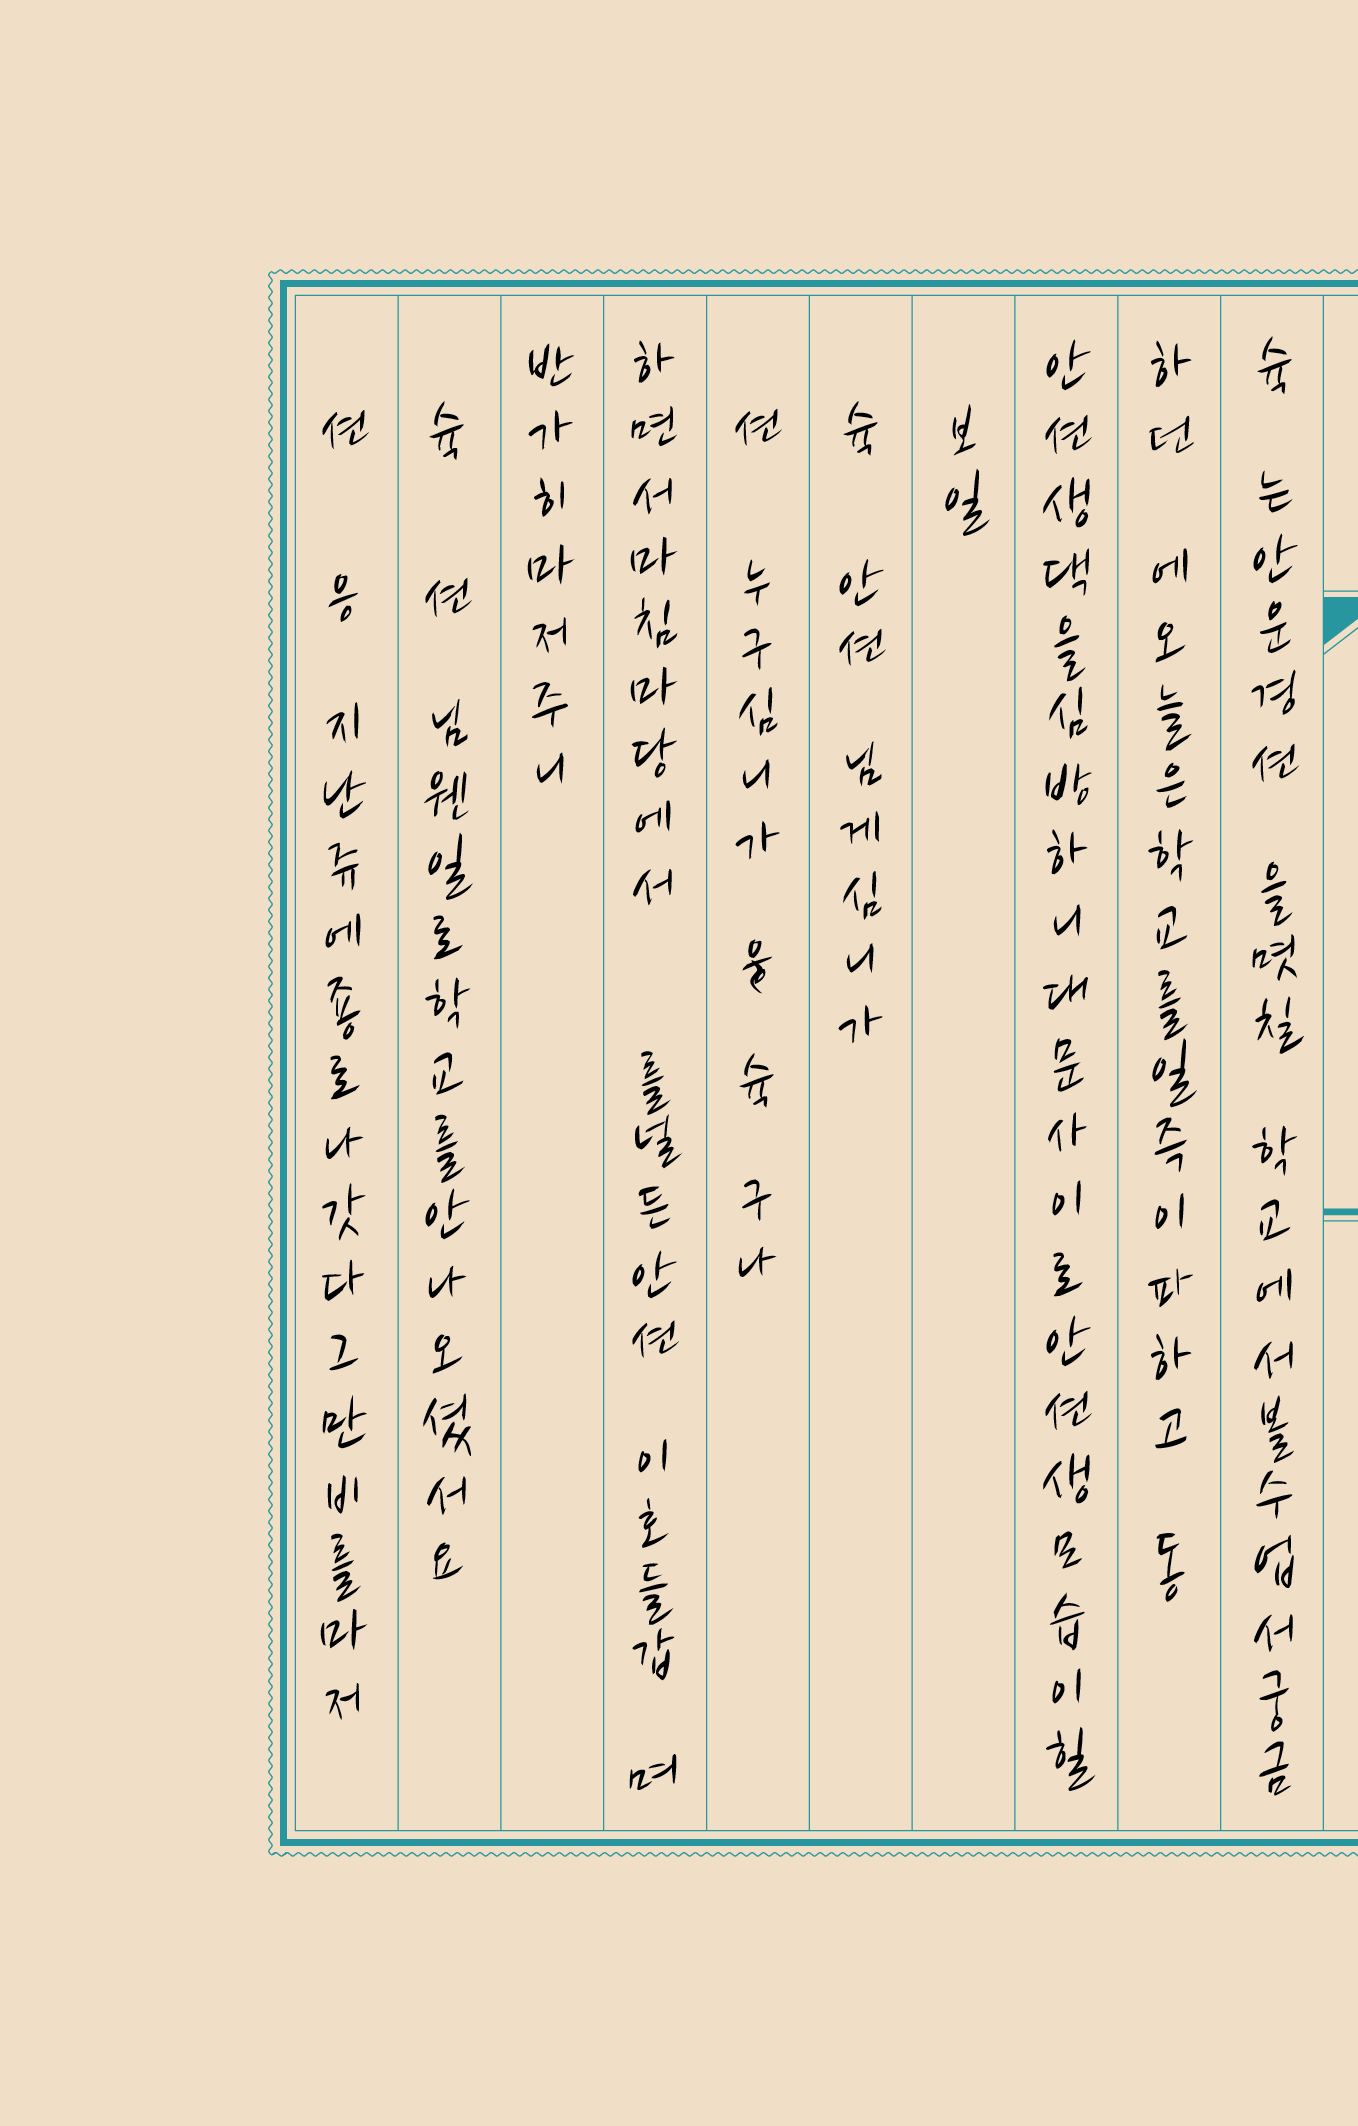 슉 는안운경션 을몃칠 학교에서볼수업서궁금
하던 에오늘은학교를일즉이파하고 동
안션생댁을심방하니대문사이로안션생모습이힐
보일
슉 안션 님게심니가
션 누구심니가 웅 슉 구나
하면서마침마당에서 를널든안션 이호들갑 며
반가히마저주니
슉 션 님웬일로학교를안나오셨서요
션 응 지난쥬에죵로나갓다그만비를마저